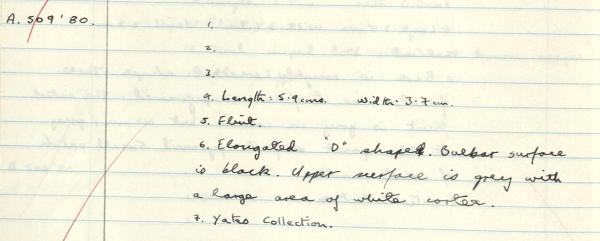 A. 509'80. 1.
2.
3.
4. Length. 5.9cms. Width. 3.7cm.
5. Flint.
6. Elongated "D" shaped. Bulbar surface
is black. Upper surface is grey with
a large area of white cortex.
7. Yates Collection.